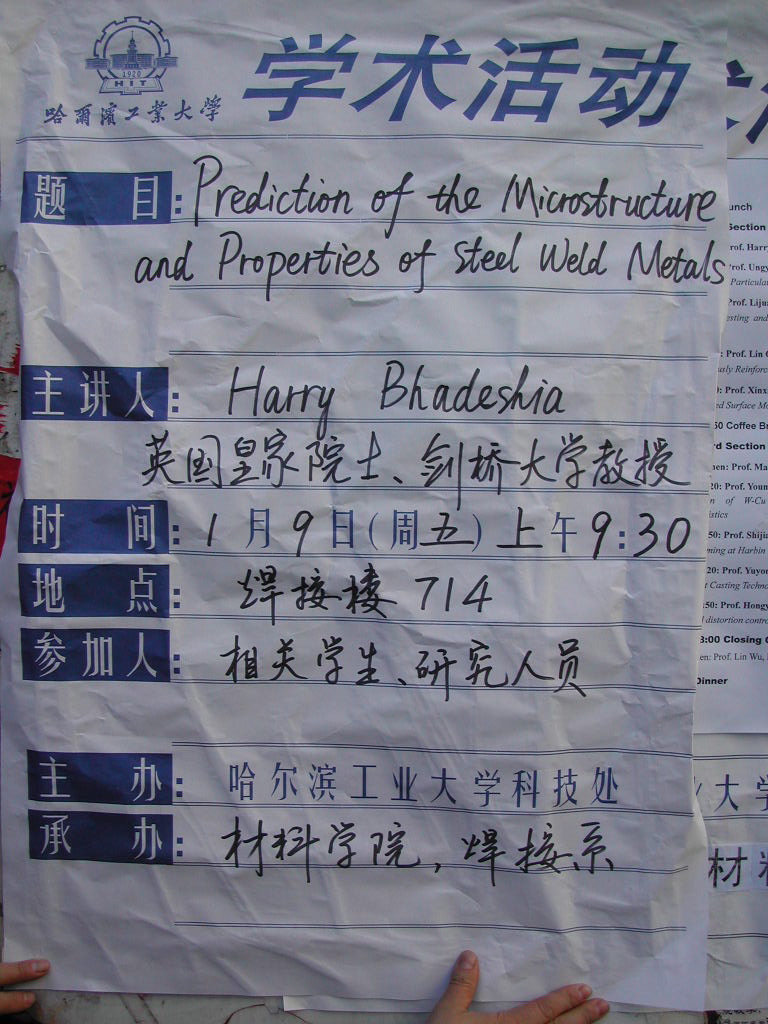 学术活动
1920
HIT
哈爾濱工業大學
题目: Prediction of the Microstructure
and Properties of Steel Weld Metals
主讲人: Harry Bhadeshia
英国皇家院士、剑桥大学教授
时间: 1月9日(周五)上午9:30
地点: 焊接楼 714
参加人: 相关学生、研究人员
主办: 哈尔滨工业大学科技处
承办: 材料学院,焊接系
unch
Section
rof. Harry
Prof. Ungy
Particula
Prof. Liju
esting and
: Prof. Lin
usly Reinforc
0: Prof. Xinx
ed Surface Mo
50 Coffee Br
rd Section
men: Prof. Ma
20: Prof. Youn
n of W-Cu
istics
50: Prof. Shiju
ming at Harbin
20: Prof. Yuyo
t Casting Techno
:50: Prof. Hongy
l distortion contro
8:00 Closing
en: Prof. Lin Wu,
Dinner
大学
材料